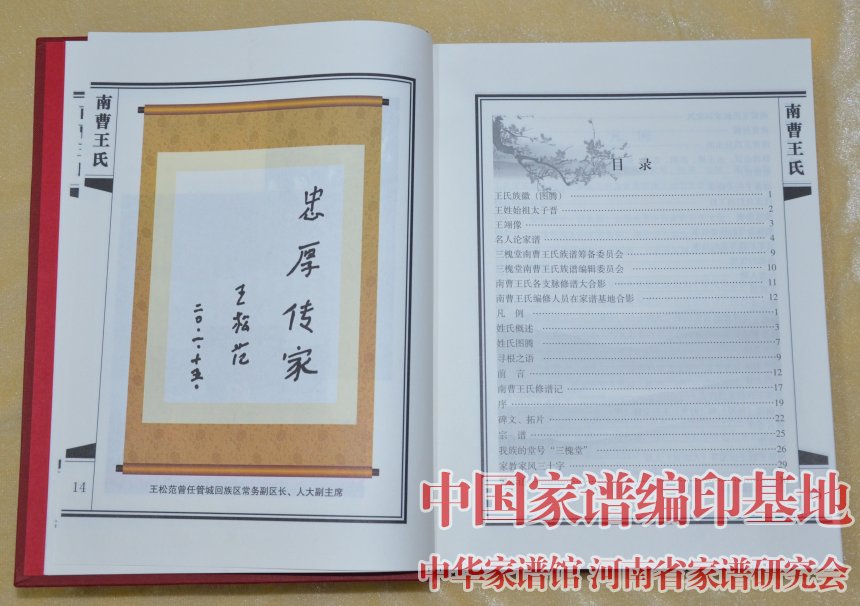 南曹王氏
忠厚传家
王松范
二〇·一·十五·
王松范曾任管城回族区常务副区长、人大副主席
14
南曹王氏
目 录
王氏族徽（图腾） 1
王姓始祖太子晋 2
王翊像 3
名人论家谱 4
三槐堂南曹王氏族谱筹备委员会 9
三槐堂南曹王氏族谱编辑委员会 10
南曹王氏各支脉修谱大合影 11
南曹王氏编修人员在家谱基地合影 12
凡 例 1
姓氏概述 3
姓氏图腾 7
寻根之语 9
前 言 12
南曹王氏修谱记 17
序 19
碑文、拓片 22
宗 谱 25
我族的堂号“三槐堂” 26
家教家风三十字 29
中国家谱编印基地
中华家谱馆 河南省家谱研究会